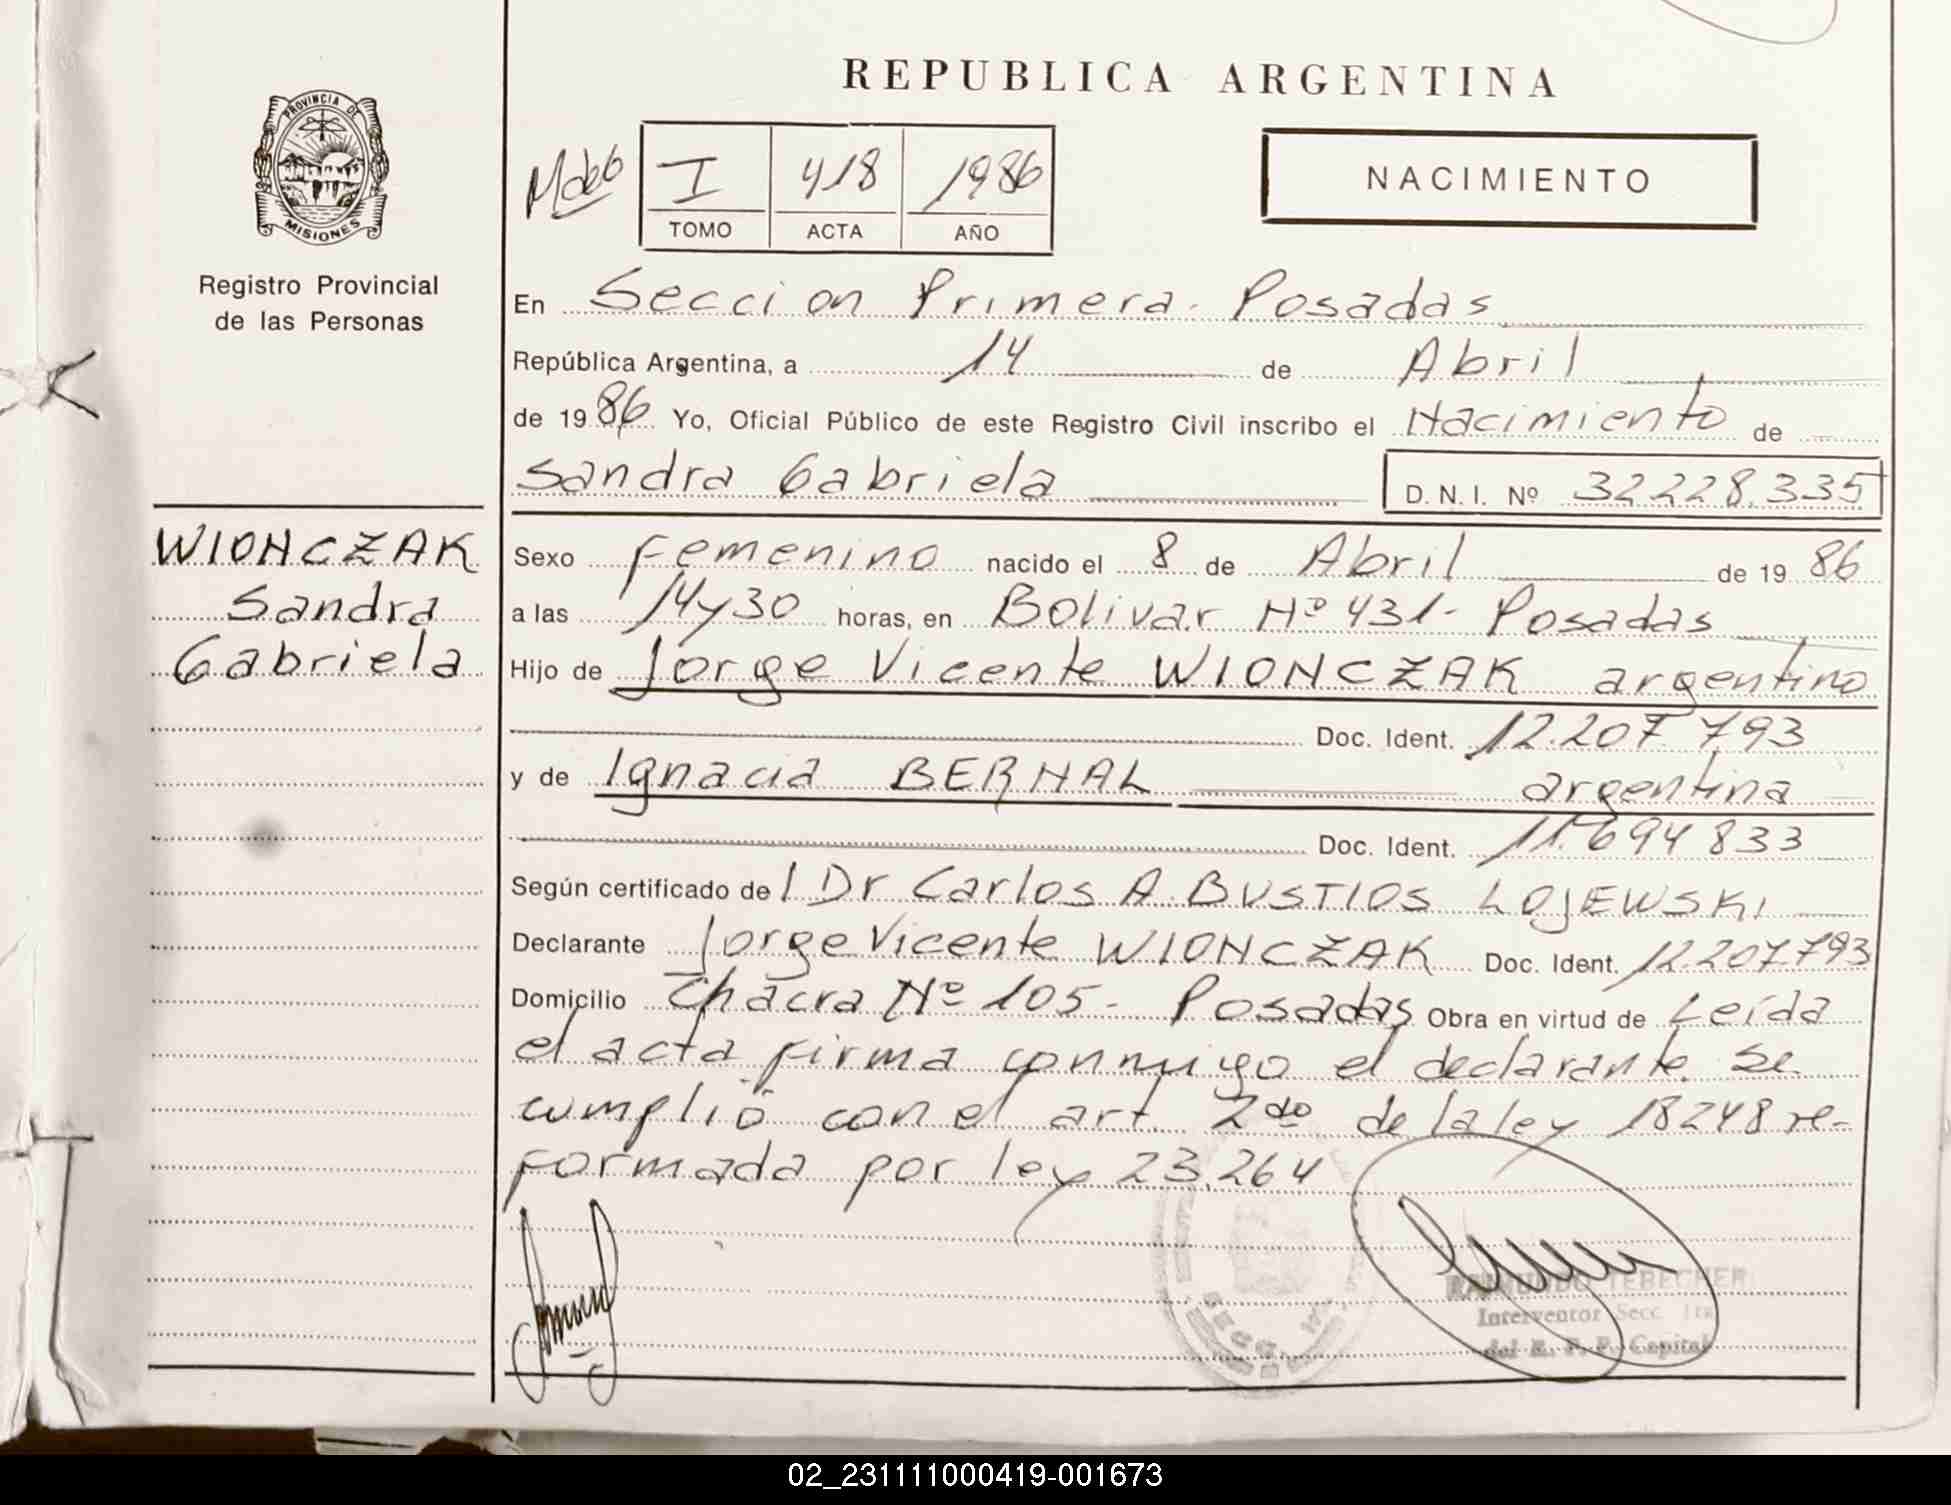 REPUBLICA ARGENTINA
PROVINCIA DE
MISIONES
Registro Provincial
de las Personas
I 418 1986
TOMO ACTA AÑO
NACIMIENTO
En Seccion Primera - Posadas
República Argentina, a 14 de Abril
de 1986 Yo, Oficial Público de este Registro Civil inscribo el Nacimiento de
Sandra Gabriela D. N. I. Nº 32228.335
WIONCZAK
Sandra
Gabriela
Sexo Femenino nacido el 8 de Abril de 1986
a las 14 y 30 horas, en Bolivar Nº 431 - Posadas
Hijo de Jorge Vicente WIONCZAK argentino
Doc. Ident. 12.207.793
y de Ignacia BERNAL argentina
Doc. Ident. 11.694 833
Según certificado del Dr Carlos A. BUSTIOS LOJEWSKI
Declarante Jorge Vicente WIONCZAK Doc. Ident. 12.207.793
Domicilio Chacra Nº 105 - Posadas Obra en virtud de Leída
el acta firma conmigo el declarante. Se
cumplió con el art. 2do de la ley 18248 re-
formada por ley 23.264
RAIMUNDO TEBECHER
Interventor Secc. 1ra
del R. P. P. Capital
02_231111000419-001673